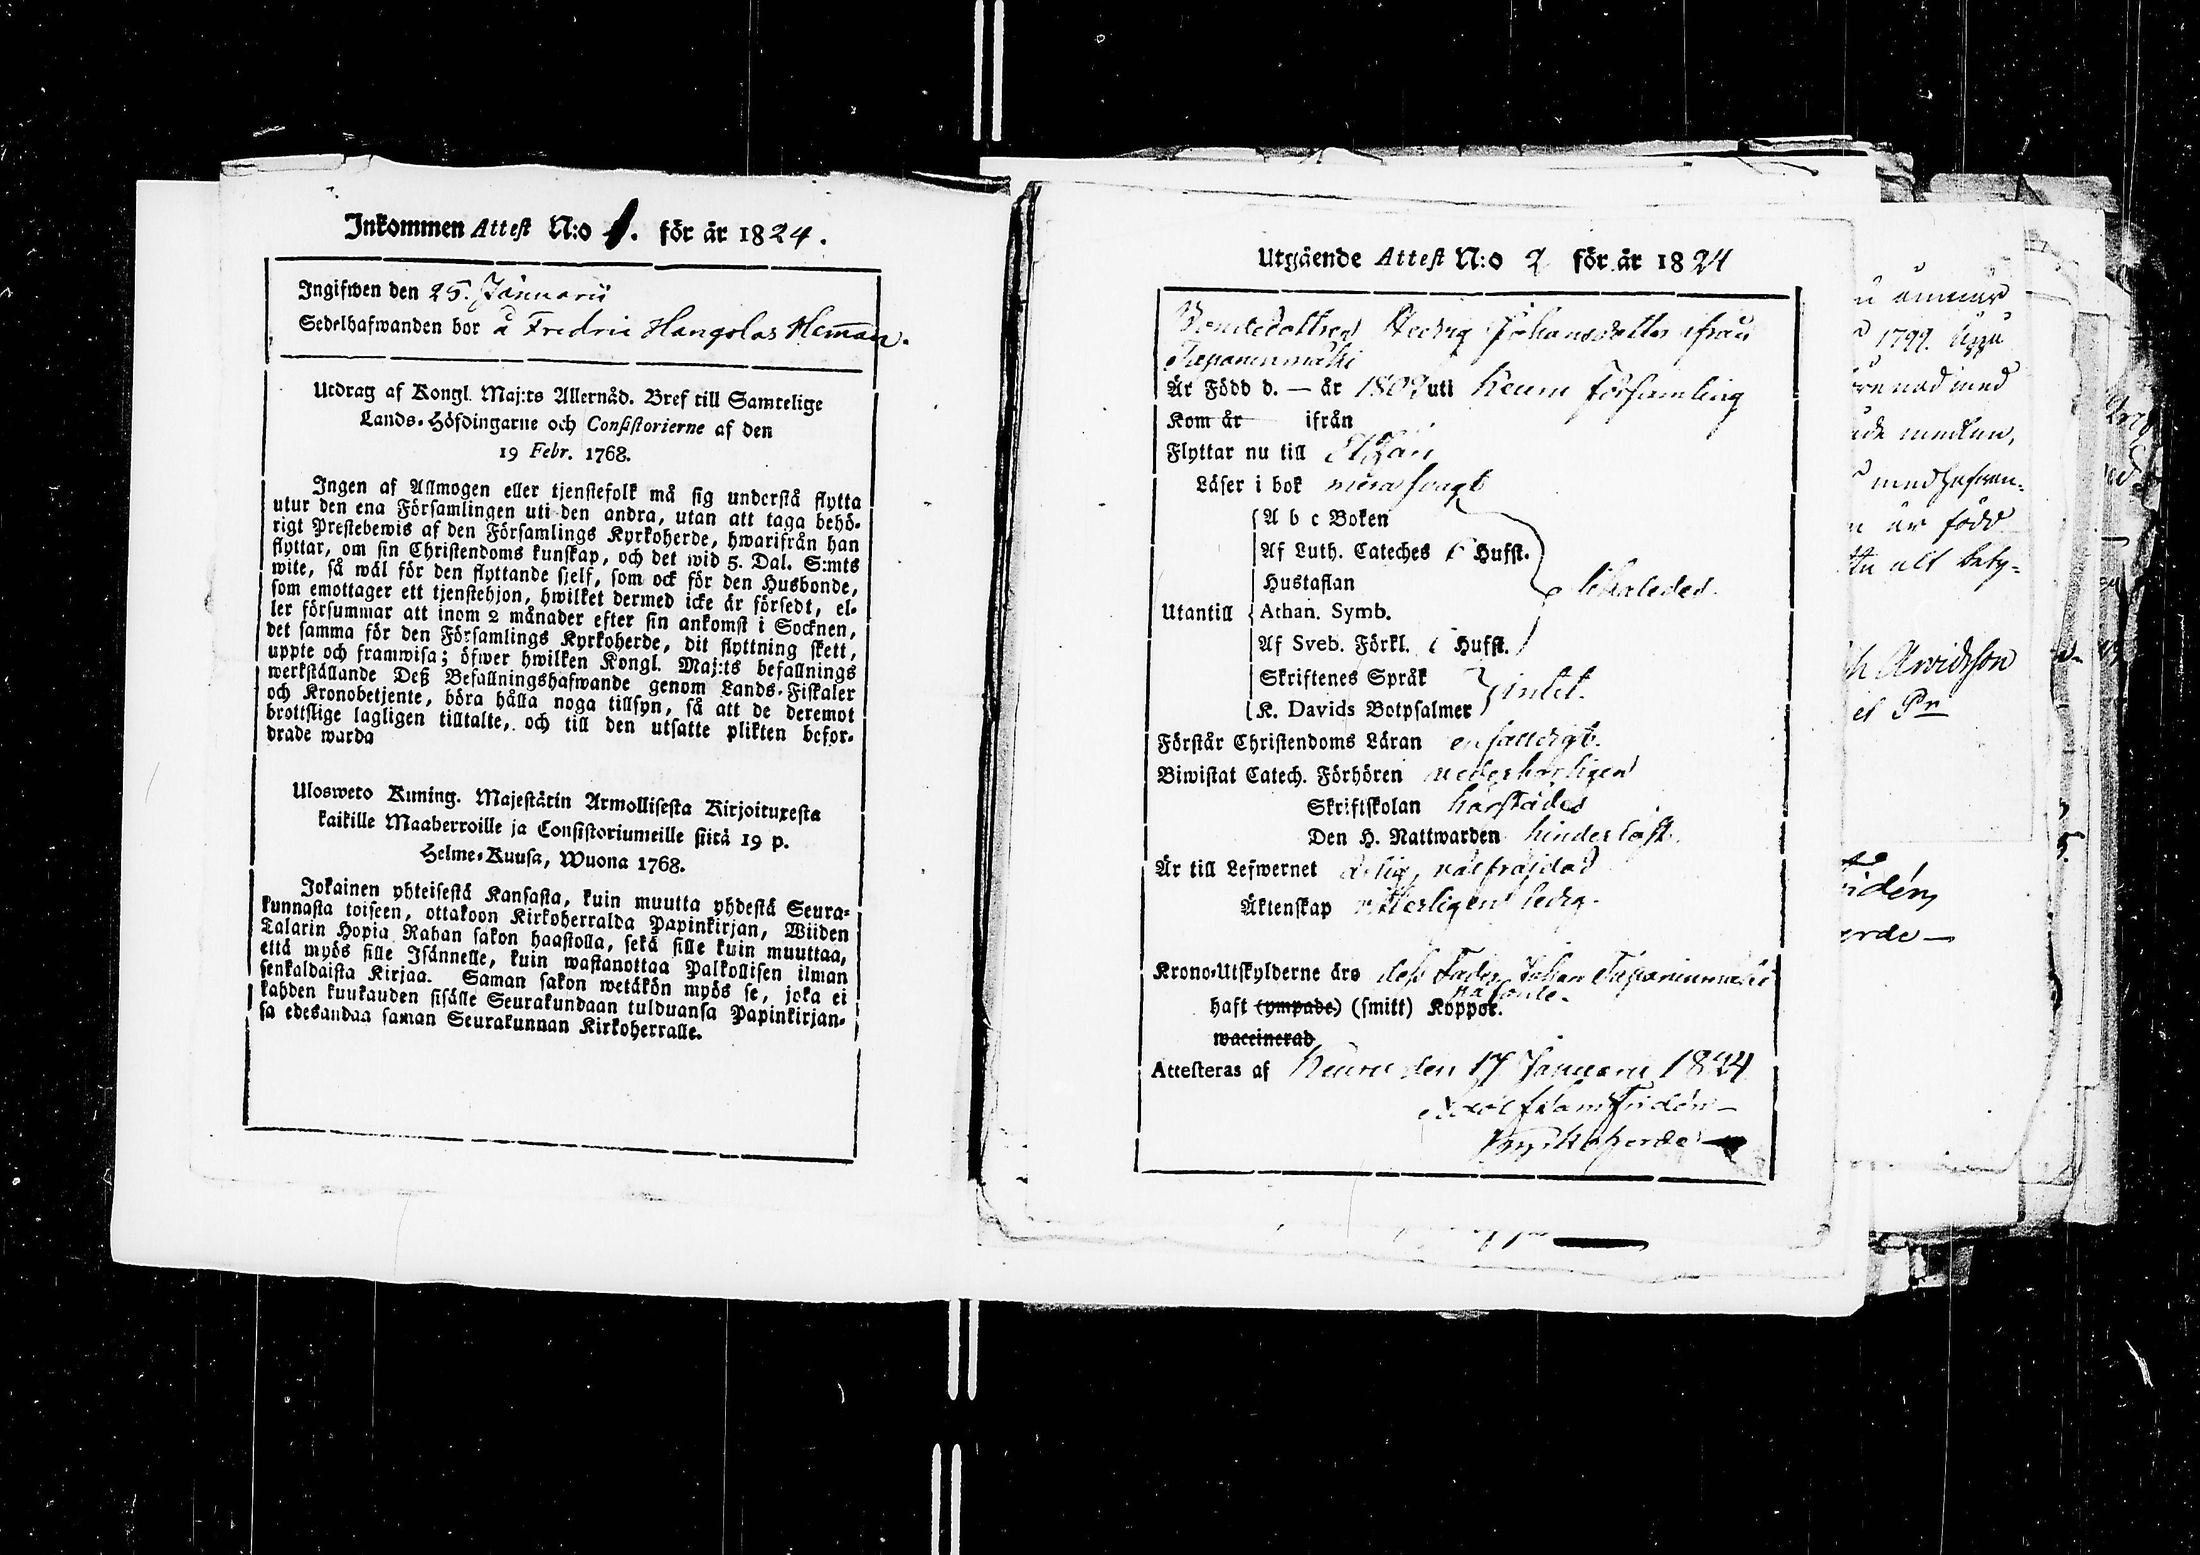 Inkommen Attest N:o 1. för år 1824.
Ingifwen den 25. Januarii
Sedelhafwanden bor å Fredric Hangolas Heman.
Utdrag af Kongl. Maj:ts Allernåd. Bref till Samtelige
Lands-Höfdingarne och Consistorierne af den
19 Febr. 1768.
Ingen af Allmogen eller tjenstefolk må sig understå flytta
utur den ena Församlingen uti den andra, utan att taga behö-
rigt Prestebewis af den Församlings Kyrkoherde, hwarifrån han
flyttar, om sin Christendoms kunskap, och det wid 5. Dal. S:mts
wite, så wäl för den flyttande sjelf, som ock för den Husbonde,
som emottager ett tjenstehjon, hwilket dermed icke är försedt, el-
ler försummar att inom 2 månader efter sin ankomst i Socknen,
det samma för den Församlings Kyrkoherde, dit flyttning skett,
uppte och framwisa; öfwer hwilken Kongl. Maj:ts befallnings
werkställande Deß Befallningshafwande genom Lands-Fiskaler
och Kronobetjente, böra hålla noga tillsyn, så att de deremot
brottslige lagligen tilltalte, och till den utsatte plikten befor-
drade warda
Ulosweto Kuning. Majestätin Armollisesta Kirjoituxesta
kaikille Maaherroille ja Consistoriumeille siitä 19 p.
Helme-Kuusa, Wuona 1768.
Jokainen yhteisestä Kansasta, kuin muutta yhdestä Seura-
kunnasta toiseen, ottakoon Kirkoherralda Papinkirjan, Wiiden
Talarin Hopia Rahan sakon haastolla, sekä sille kuin muuttaa,
että myös sille Isännelle, kuin wastanottaa Palkollisen ilman
senkaldaista Kirjaa. Saman sakon wetäkön myös se, joka ei
kahden kuukauden sisälle Seurakundaan tulduansa Papinkirjan-
sa edesandaa saman Seurakunnan Kirkoherralle.
Utgående Attest N:o 2 för år 1824
Bondedottren Hedvig Johansdotter ifrån
Taponenmäki
Är Född d. — år 1809 uti Keuru Församling
Kom år ifrån
Flyttar nu till
Läser i bok svagt
A b c Boken
Af Luth. Cateches Hufst.
Hustaflan
Utantill Athan. Symb.
Af Sveb. Förkl. Hufst.
Skriftenes Språk
K. Davids Botpsalmer intet.
Förstår Christendoms Läran enfaldigt.
Biwistat Catech. Förhören wederbörligen
Skriftskolan
Den H. Nattwarden hinderlöst.
Är till Lefwernet ärlig, wälfräjdad
Äktenskap witterligen ledig.
Krono-Utskylderne äro deß Fader Johan Taponenmäki
påförde.
haft (ympade) (smitt) Koppor.
waccinerad
Attesteras af Keuru den 17 Januarii 1824
Fridén
Kyrkoherde
1799.
är född
Arvidsson
Pr